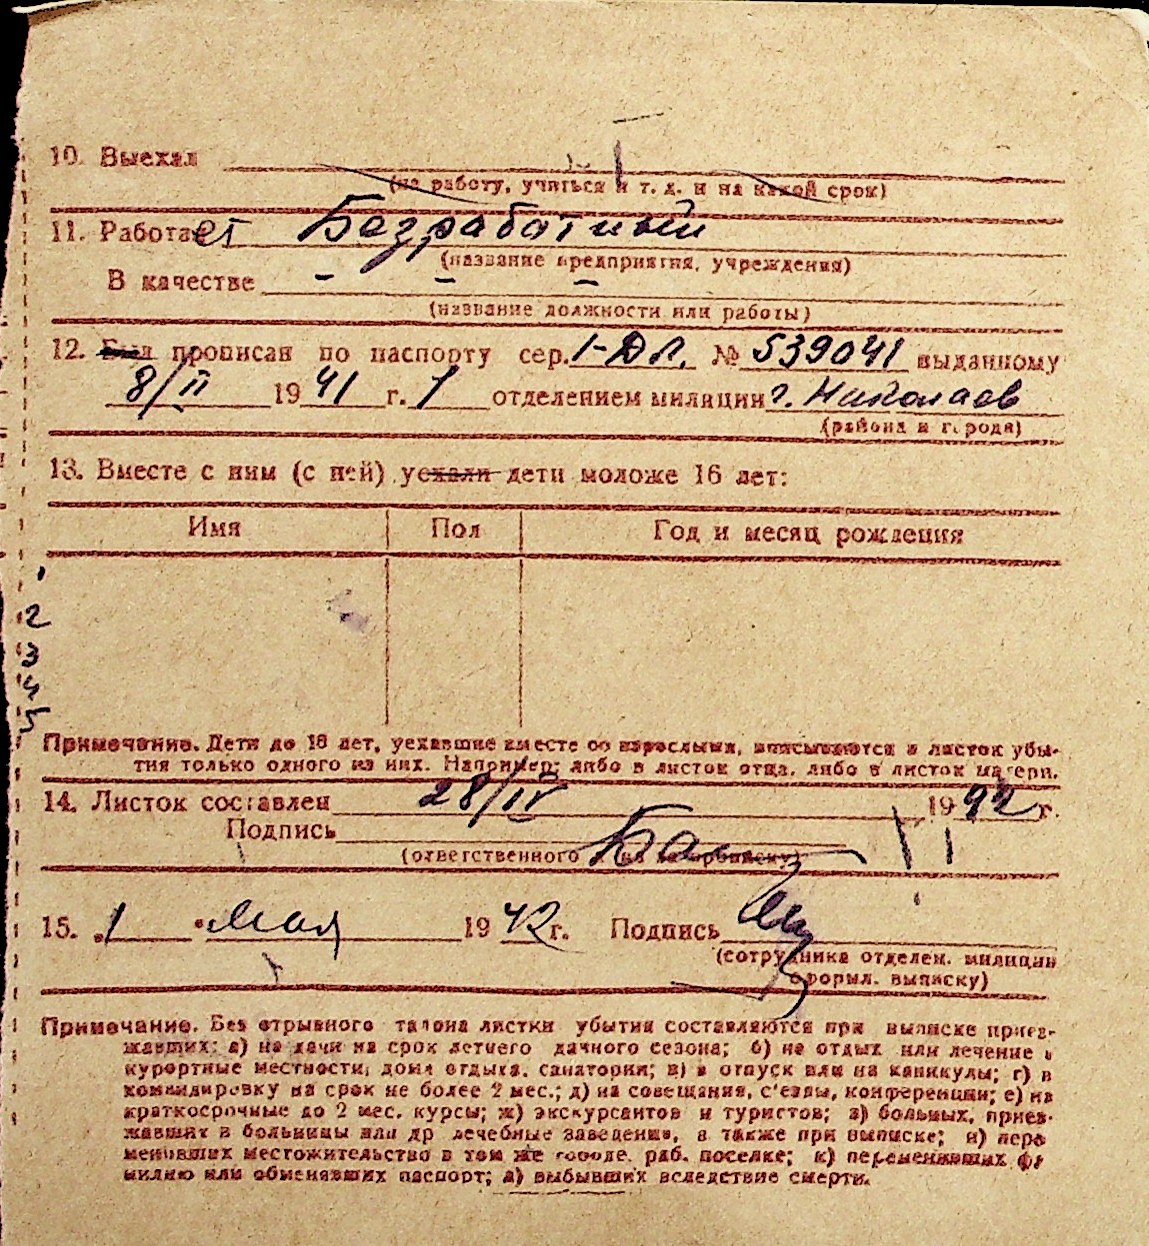 10. Выехал
(на работу, учиться и т. д. и на какой срок)
11. Работает Безработный
(название предприятия, учреждения)
В качестве - - -
(название должности или работы)
12. Был прописан по паспорту сер. 1-ДЛ. № 539041 выданному
8/II 1941 г. 1 отделением милиции г. Николаев
(района и города)
13. Вместе с ним (с ней) уехали дети моложе 16 лет:
Имя Пол Год и месяц рождения
2
3
4
5
Примечание. Дети до 16 лет, уехавшие вместе со взрослыми, вписываются в листок убы-
тия только одного из них. Например: либо в листок отца, либо в листок матери.
14. Листок составлен 28/IV 1942 г.
Подпись
(ответственного за прописку)
15. „1" Мая 1942 г. Подпись
(сотрудника отделен. милиции
оформл. выписку)
Примечание. Без отрывного талона листки убытия составляются при выписке приез-
жавших: а) на дачи на срок летнего дачного сезона; б) на отдых или лечение в
курортные местности, дома отдыха, санатории; в) в отпуск или на каникулы; г) в
командировку на срок не более 2 мес.; д) на совещания, с'езды, конференции; е) на
краткосрочные до 2 мес. курсы; ж) экскурсантов и туристов; з) больных, приез-
жавших в больницы или др лечебные заведения, а также при выписке; и) пере
менивших местожительство в том же городе, раб. поселке; к) переменивших фа
милию или обменявших паспорт; л) выбывших вследствие смерти.